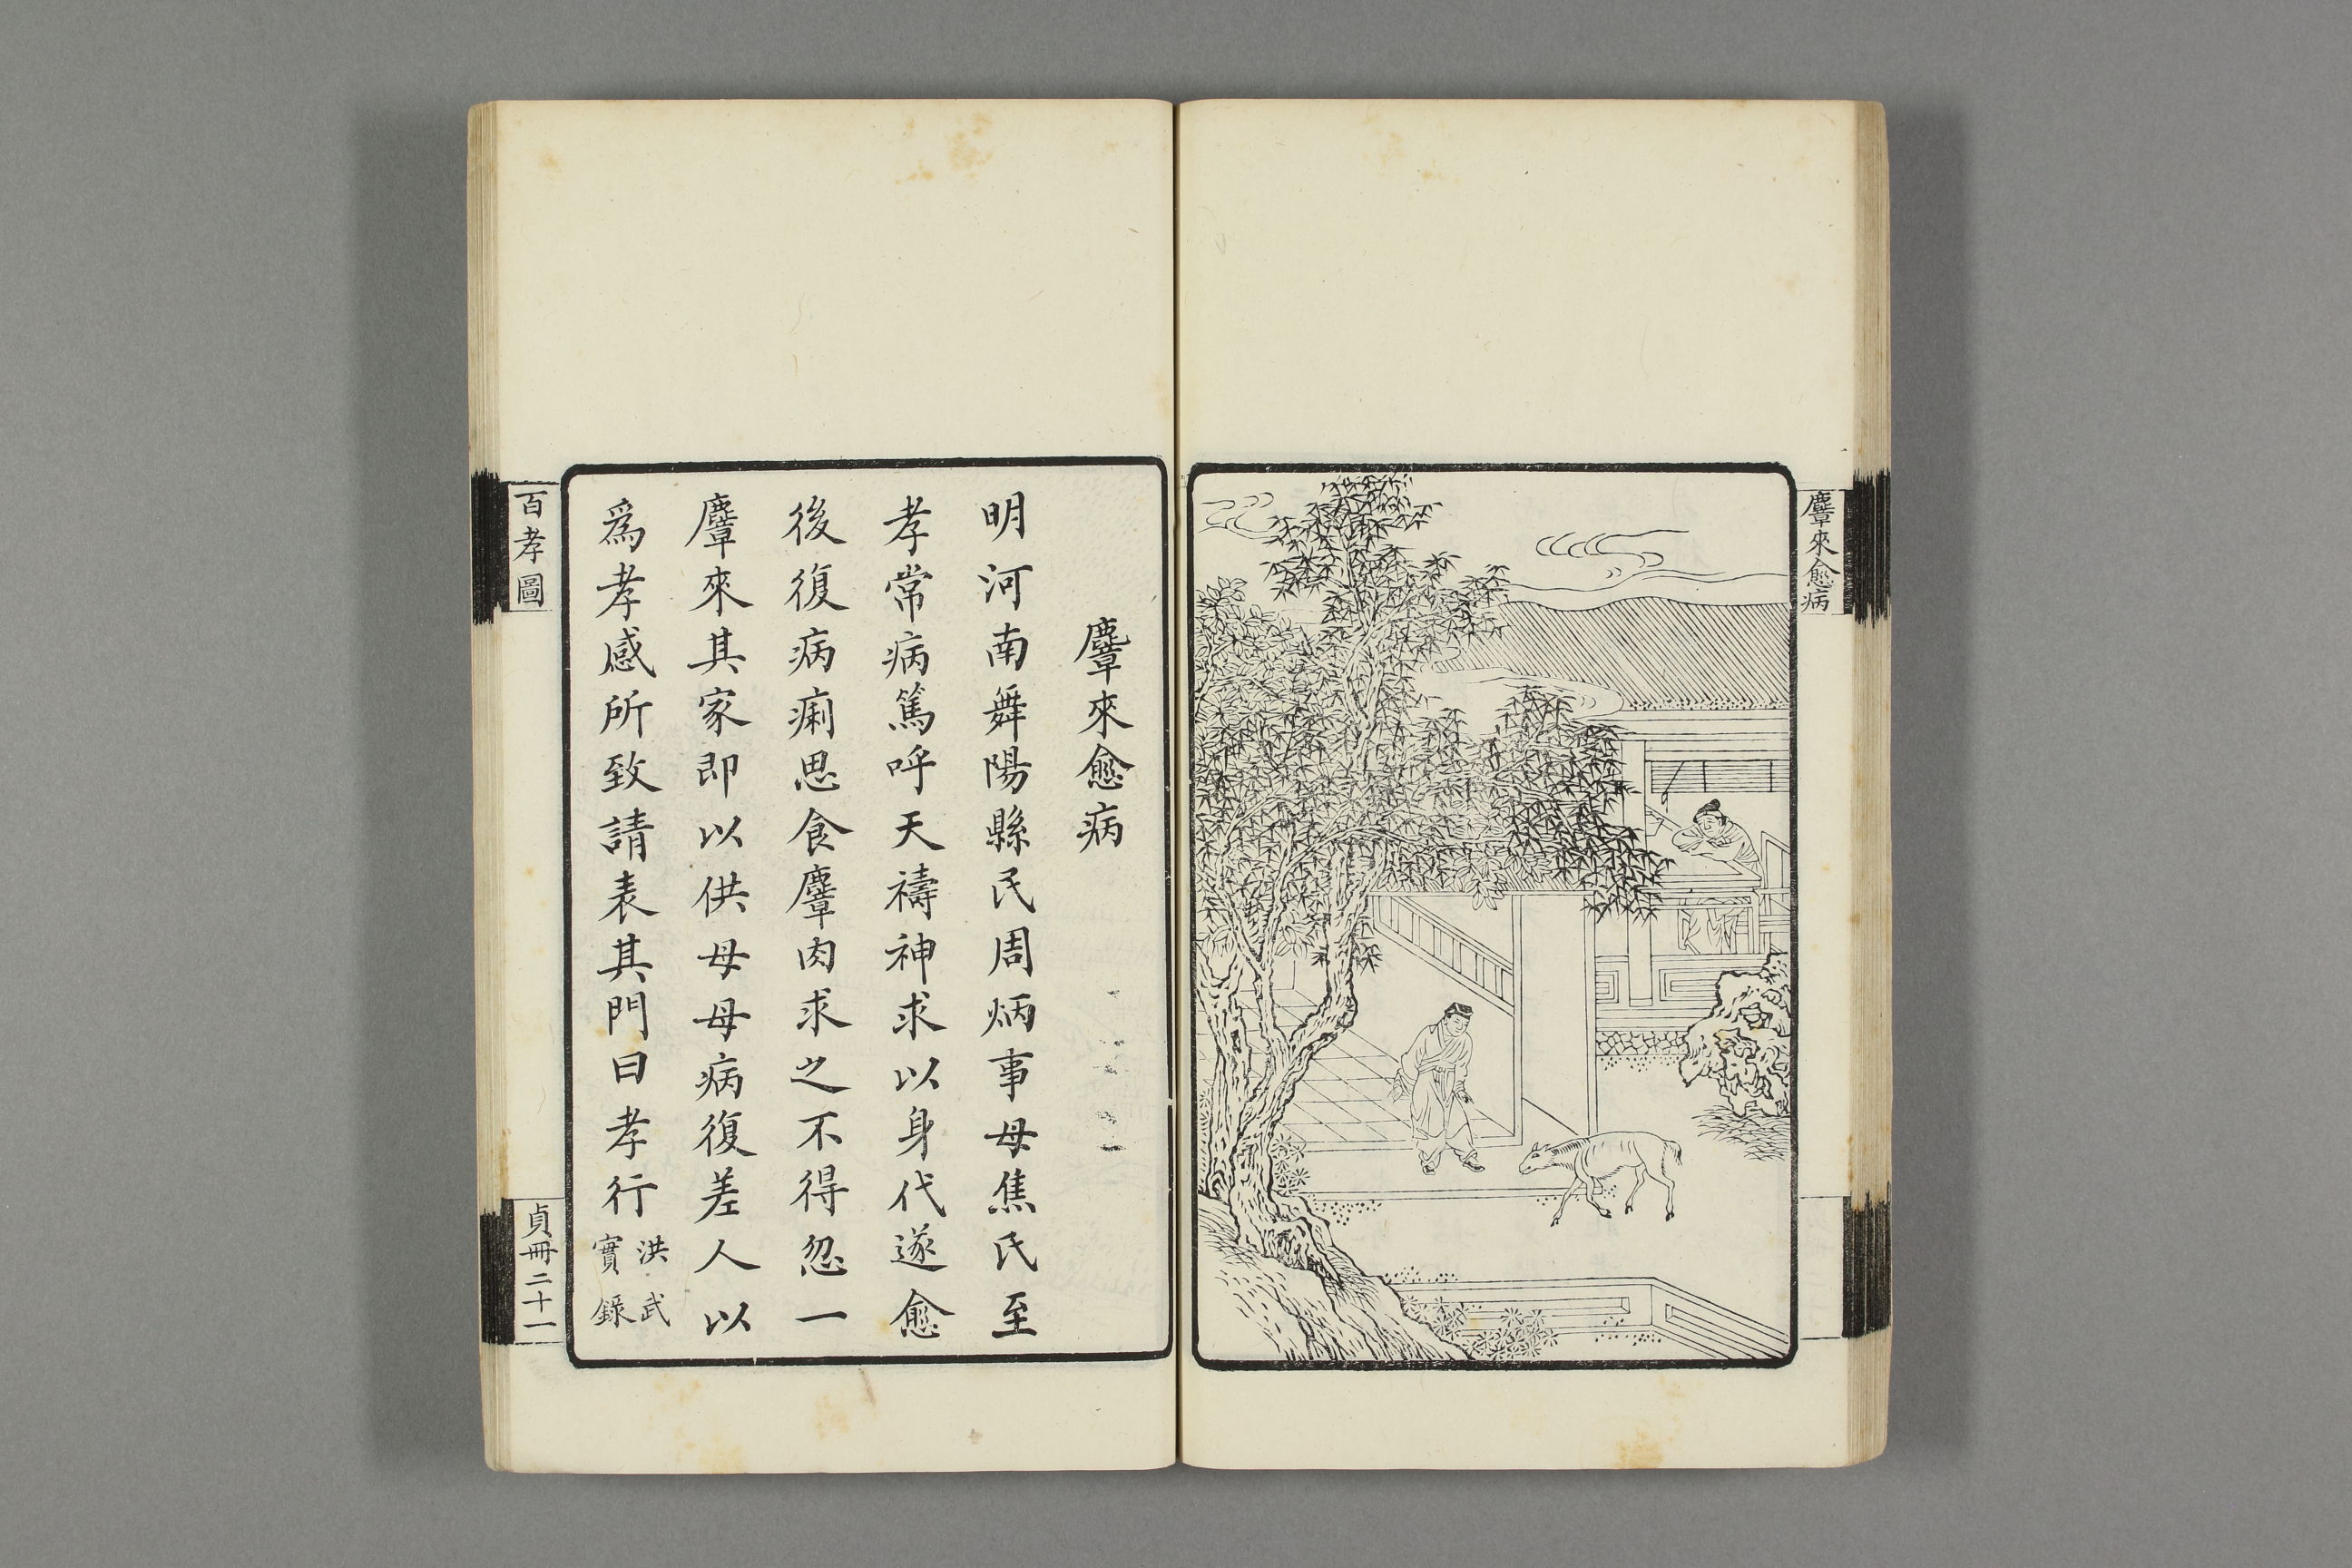 麞來愈病
麞來愈病
明河南舞陽縣民周炳事母焦氏至
孝常病篤呼天禱神求以身代遂愈
後復病痢思食麞肉求之不得忽一
麞來其家即以供母母病復差人以
爲孝感所致請表其門曰孝行
洪武
實錄
百孝圖
貞冊二十一